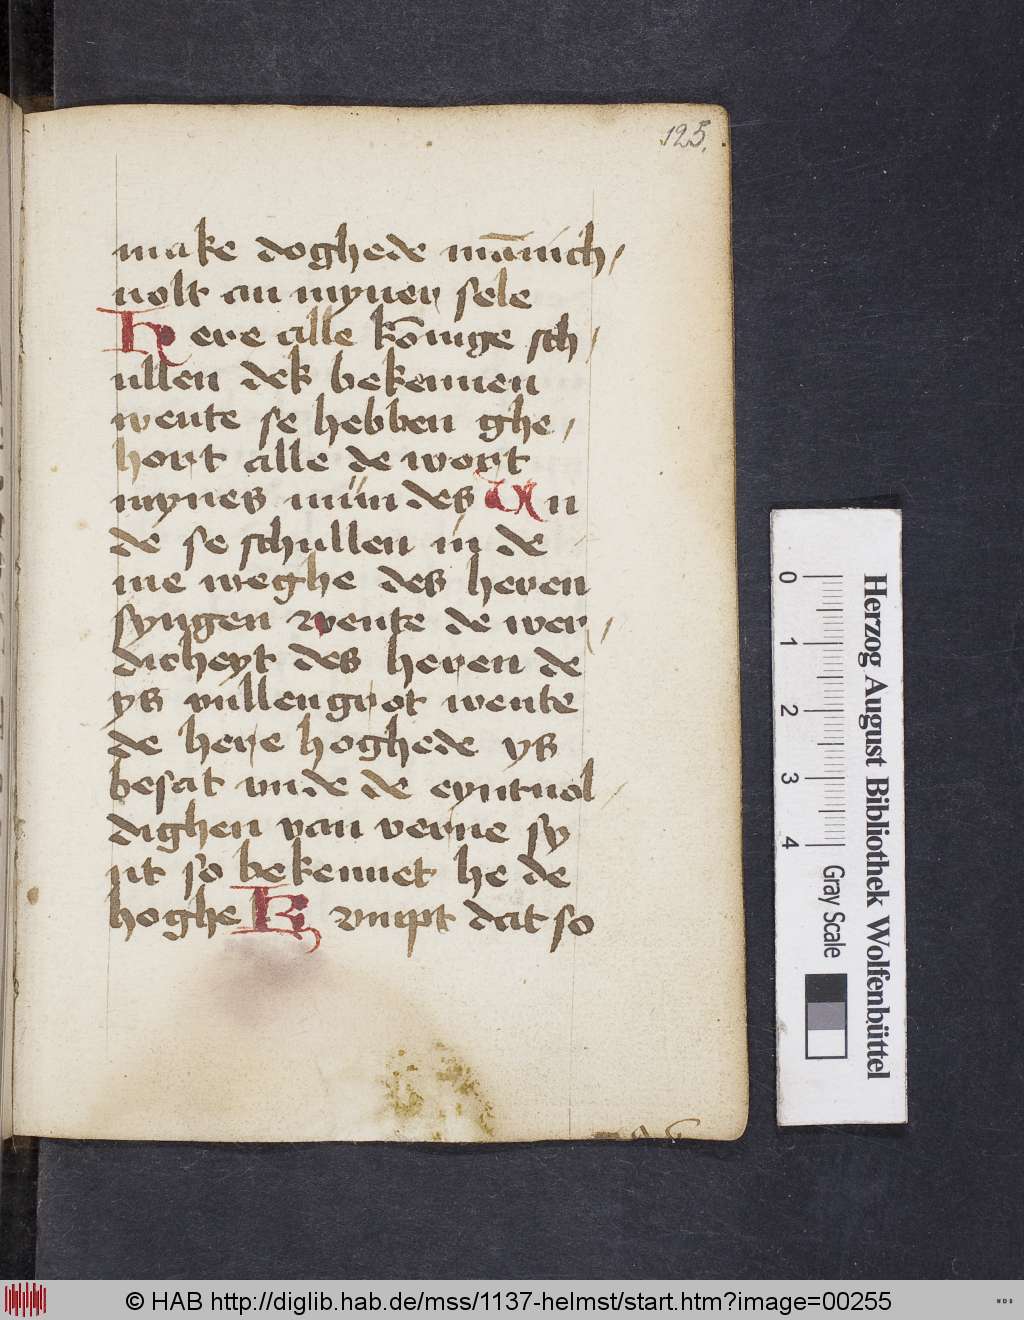 125.
make doghede mānich/
uolt an myner sele
Here alle kōnige sch/
ullen dek bekennen
wente se hebben ghe/
hort alle de wort
mynes mundes Un
de se schullen in de
me weghe des heren
syngen wente de wer/
dicheyt des heren de
ys vullengrot wente
de here hoghede ys
besat vnde de eyntuol/
dighen van verne sy
ut so bekennet he de
hoghe Kvmpt dat so
Herzog August Bibliothek Wolfenbüttel
0 1 2 3 4 Gray Scale
© HAB http://diglib.hab.de/mss/1137-helmst/start.htm?image=00255